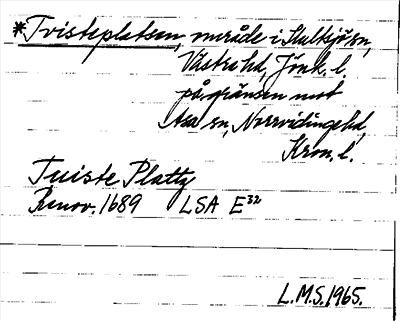 *Tvisteplatsen, område i Hultsjö sn,
Västra hd, Jönk. l.
på gränsen mot
Asa sn, Norrvidinge hd,
Kron. l.
Tuiste Platz
Renov. 1689 LSA E³²
L.M.S. 1965.